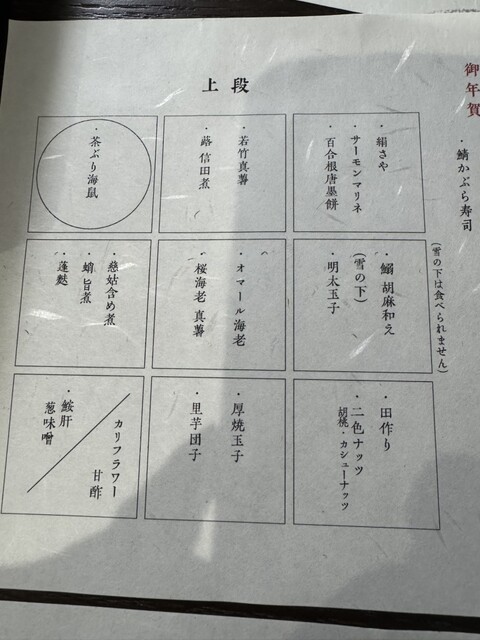 御年賀
・鯖かぶら寿司
(雪の下は食べられません)
上段
・絹さや
・サーモンマリネ
・百合根唐墨餅
・若竹真薯
・蕗 信田煮
・茶ぶり海鼠
・鰯 胡麻和え
(雪の下)
・明太玉子
・オマール海老
・桜海老 真薯
・慈姑含め煮
・蛸 旨煮
・蓬麩
・田作り
・二色ナッツ
胡桃・カシューナッツ
・厚焼玉子
・里芋団子
カリフラワー
甘酢
・鮟肝
葱味噌